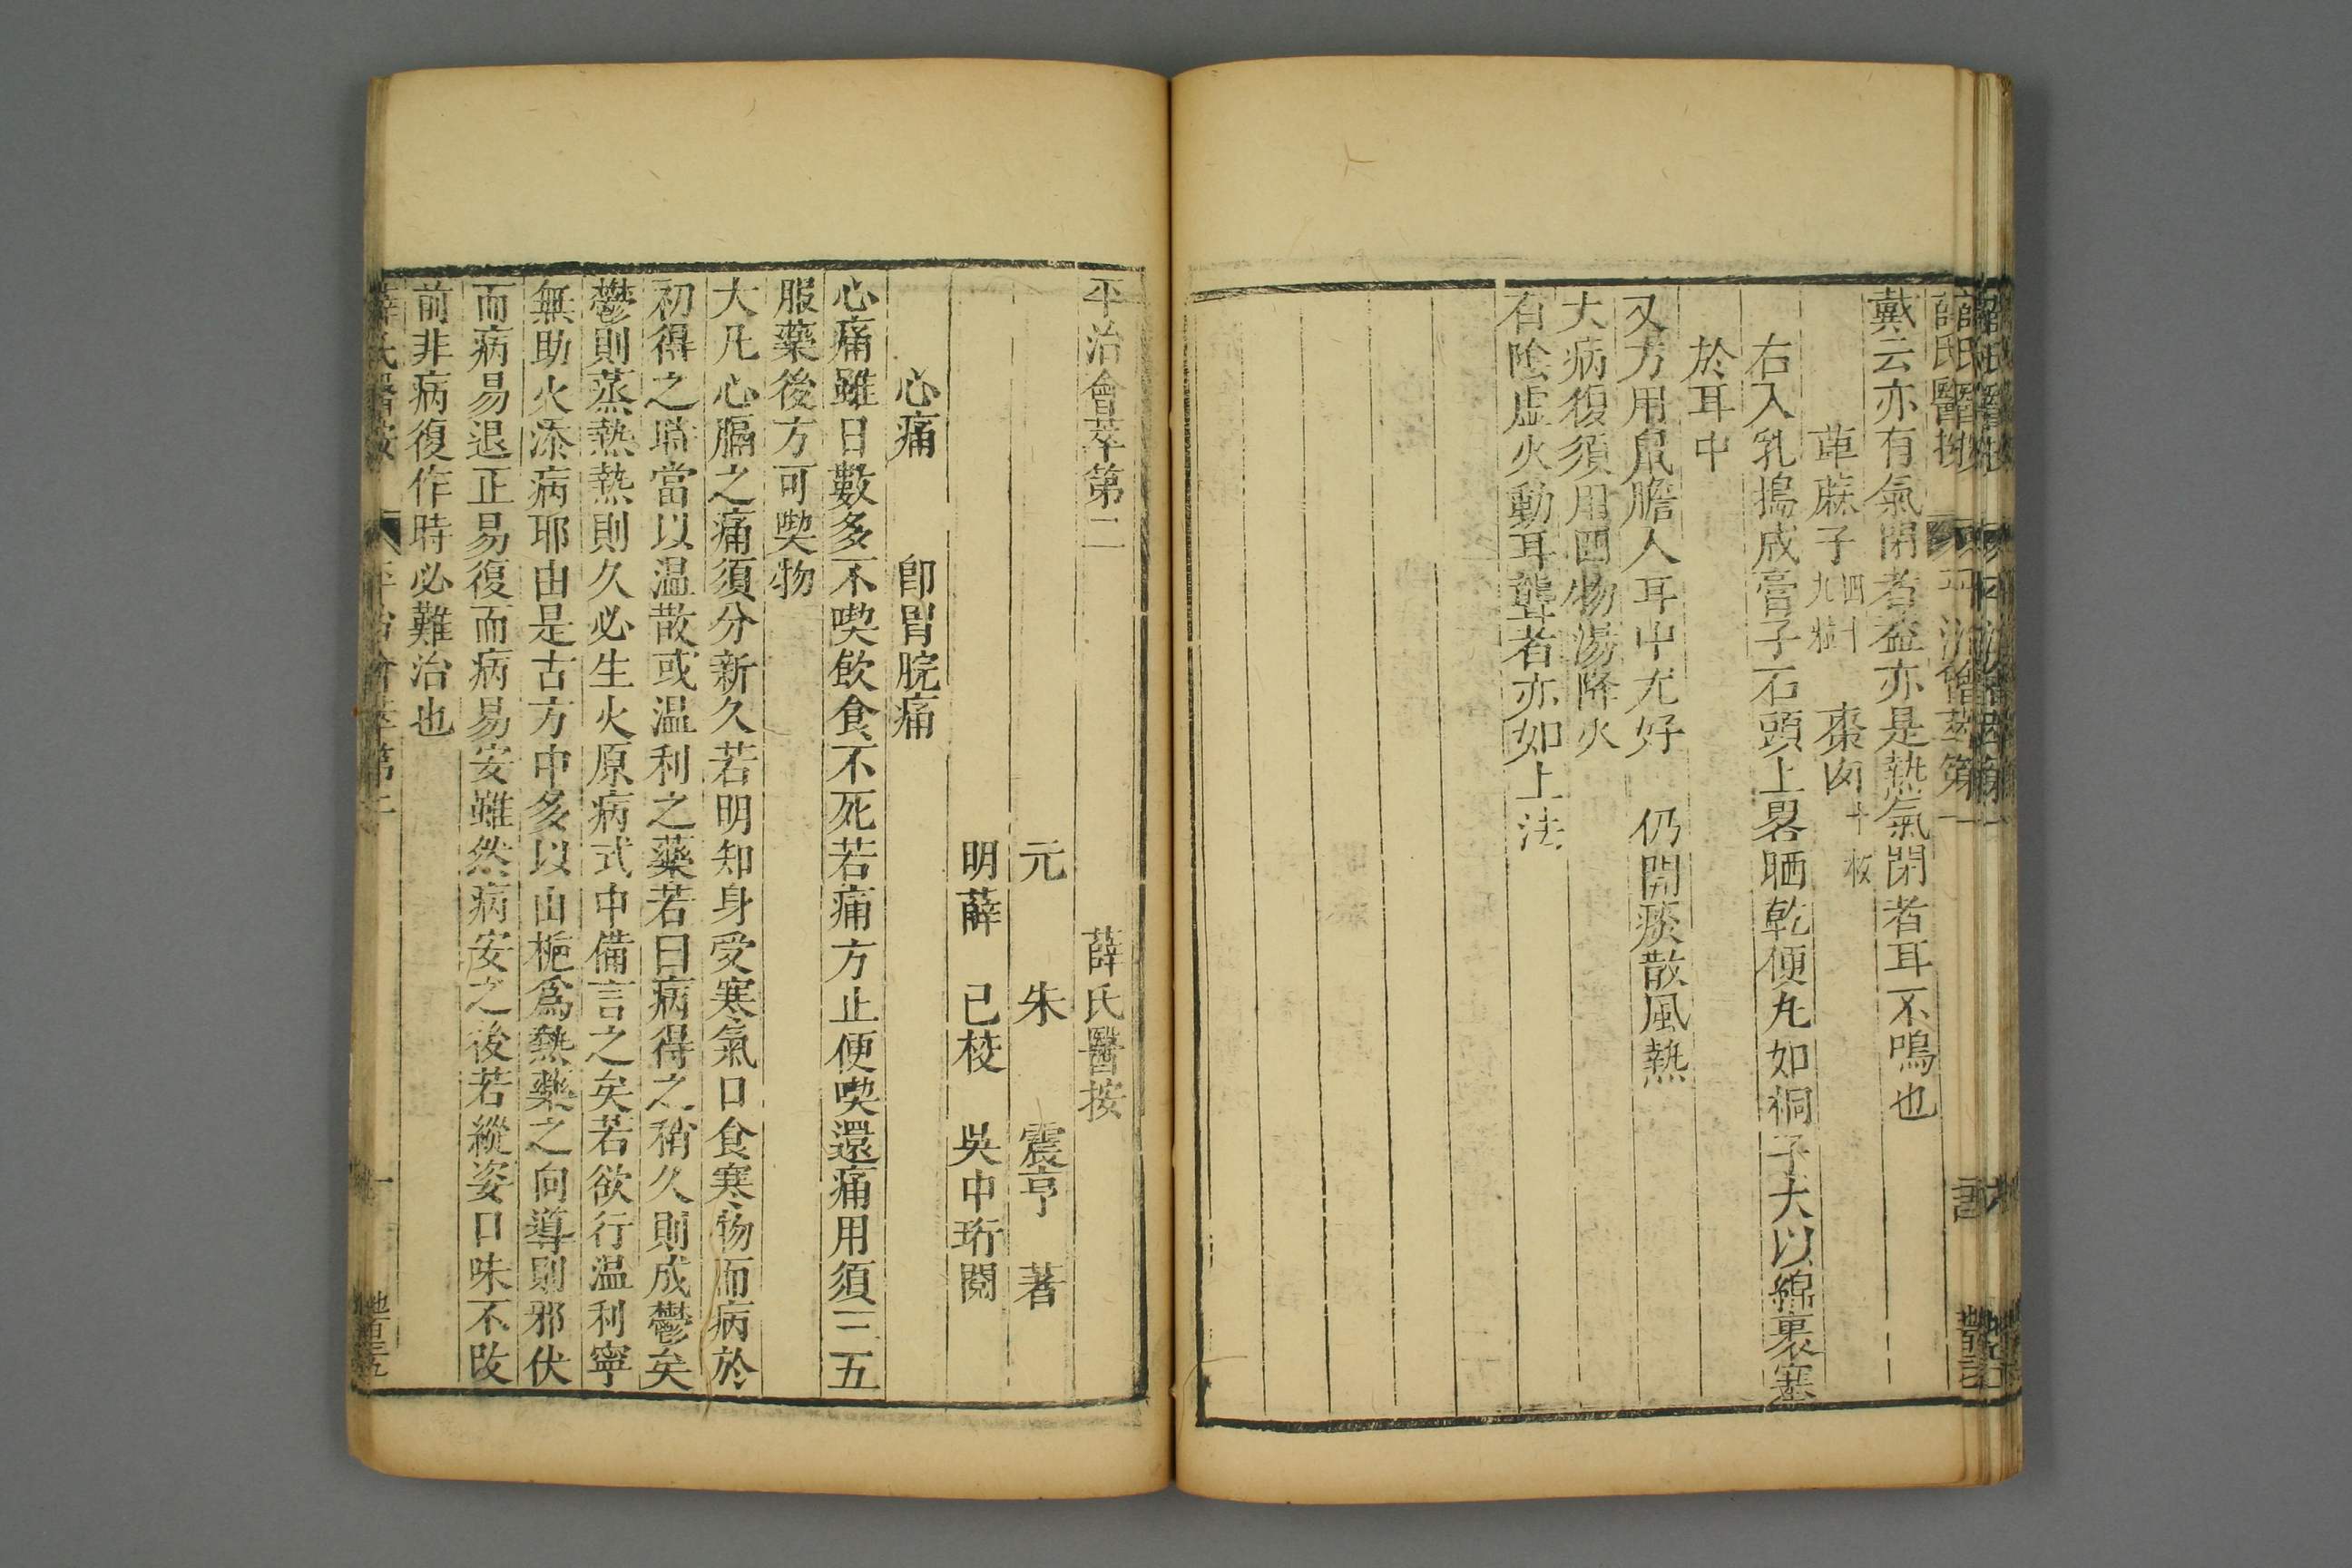 戴云亦有氣閉者盖亦是熱氣閉者耳不鳴也
萆蔴子四十九粒 棗肉十枚
右入乳搗成膏子石頭上畧晒乾便丸如桐子大以綿裹塞
於耳中
又方用鼠膽入耳中尤好 仍開痰散風熱
大病復須用四物湯降火
有陰虛火動耳聾者亦如上法
平治會萃第二 薛氏醫按
元 朱 震亨 著
明薛 己校 吳中珩閱
心痛 卽胃脘痛
心痛雖日數多不喫飲食不死若痛方止便喫還痛用須三五
服藥後方可喫物
大凡心膈之痛須分新久若明知身受寒氣口食寒物而病於
初得之時當以温散或温利之藥若曰病得之稍久則成鬱矣
鬱則蒸熱熱則久必生火原病式中備言之矣若欲行温利寧
無助火添病耶由是古方中多以山梔爲熱藥之向導則邪伏
而病易退正易復而病易安雖然病安之後若縱姿口味不改
前非病復作時必難治也